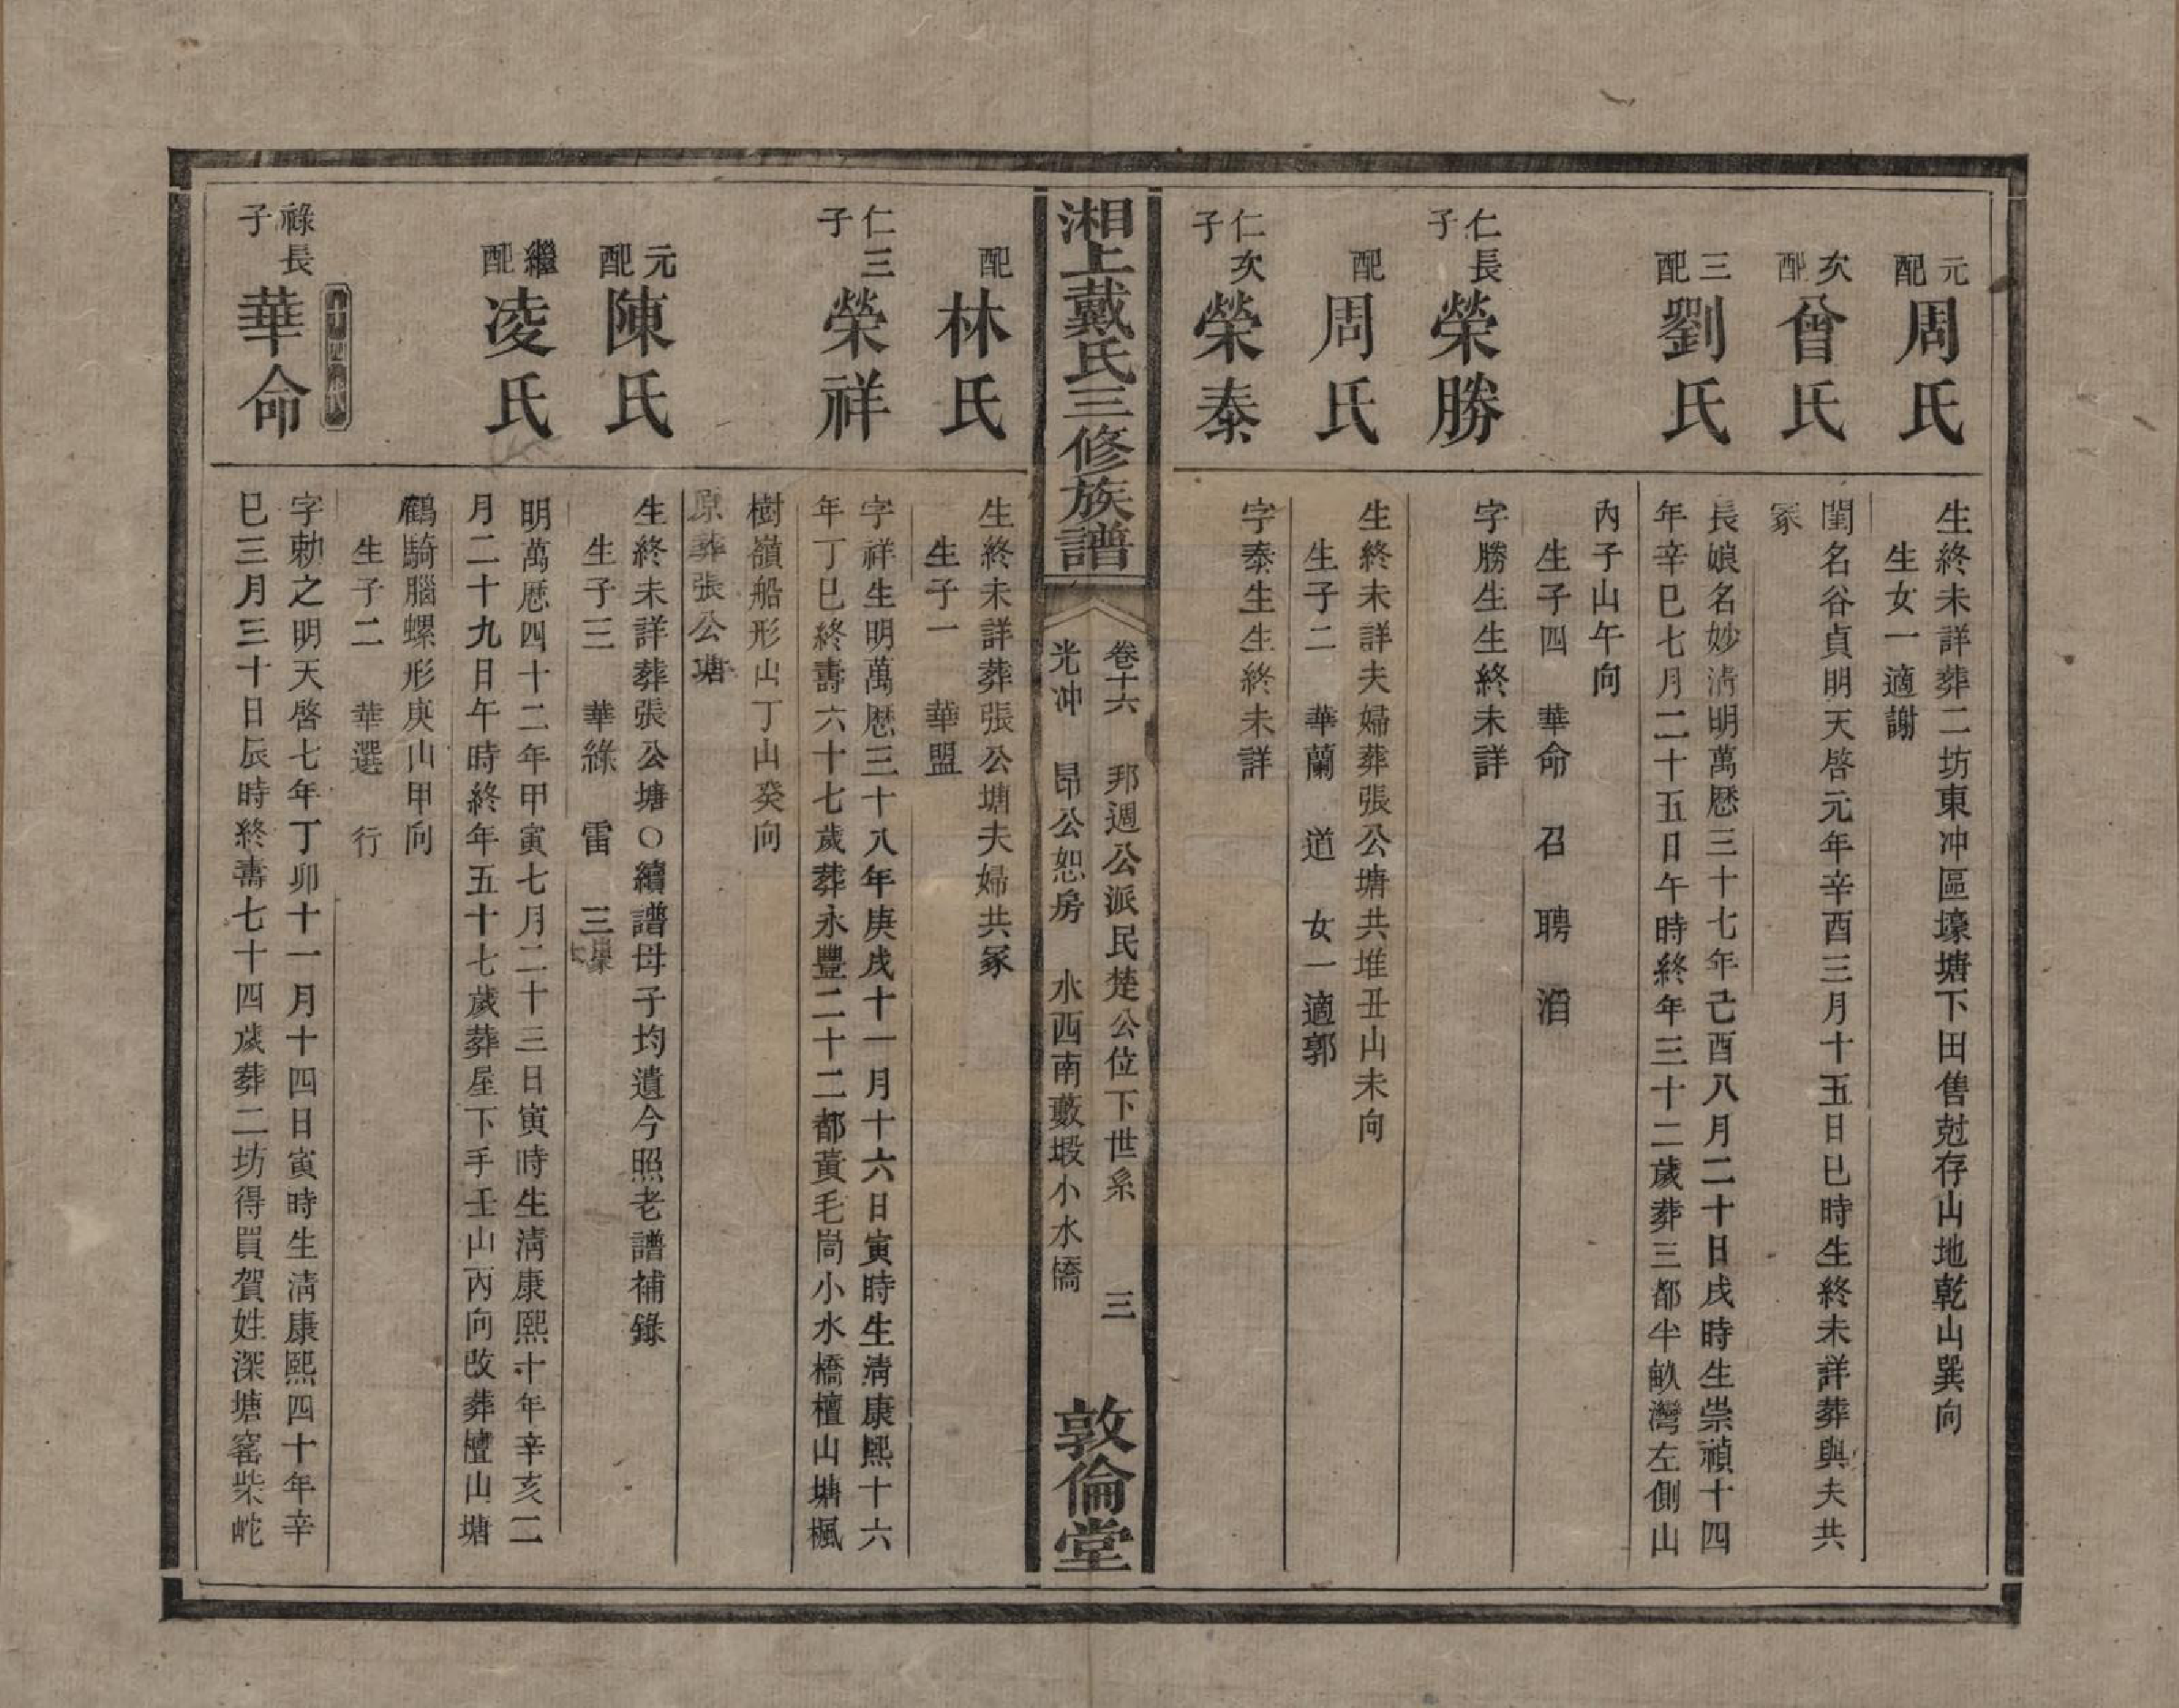 元配 周氏
生終未詳葬二坊東冲區壕塘下田售尅存山地乾山巽向
生女一適謝
次配 曾氏
閨名谷貞明天啓元年辛酉三月十五日巳時生終未詳葬與夫共
冢
三配 劉氏
長娘名妙清明萬厯三十七年己酉八月二十日戌時生崇禎十四
年辛巳七月二十五日午時終年三十二歲葬三都半畝灣左側山
內子山午向
生子四 華命 召 聘 滔
仁長子 榮勝
字勝生生終未詳
配 周氏
生終未詳夫婦葬張公塘共堆丑山未向
生子二 華蘭 道 女一適郭
仁次子 榮泰
字泰生生終未詳
湘上戴氏三修族譜
卷十六 邦週公派民楚公位下世系 三
光冲 昂公恕房 水西南藪塅小水橋
敦倫堂
配 林氏
生終未詳葬張公塘夫婦共冢
生子一 華盟
仁三子 榮祥
字祥生明萬厯三十八年庚戌十一月十六日寅時生清康熙十六
年丁巳終壽六十七歲葬永豐二十二都黃毛崗小水橋檀山塘楓
樹嶺船形山丁山癸向
原葬張公塘
元配 陳氏
生終未詳葬張公塘〇續譜母子均遺今照老譜補錄
生子三 華綠 雷 三
繼配 凌氏
明萬厯四十二年甲寅七月二十三日寅時生清康熙十年辛亥二
月二十九日午時終年五十七歲葬屋下手壬山丙向改葬檀山塘
鶴騎腦螺形庚山甲向
生子二 華選 行
祿長子 華命
字勅之明天啓七年丁卯十一月十四日寅時生清康熙四十年辛
巳三月三十日辰時終壽七十四歲葬二坊得買賀姓深塘窰柴屹